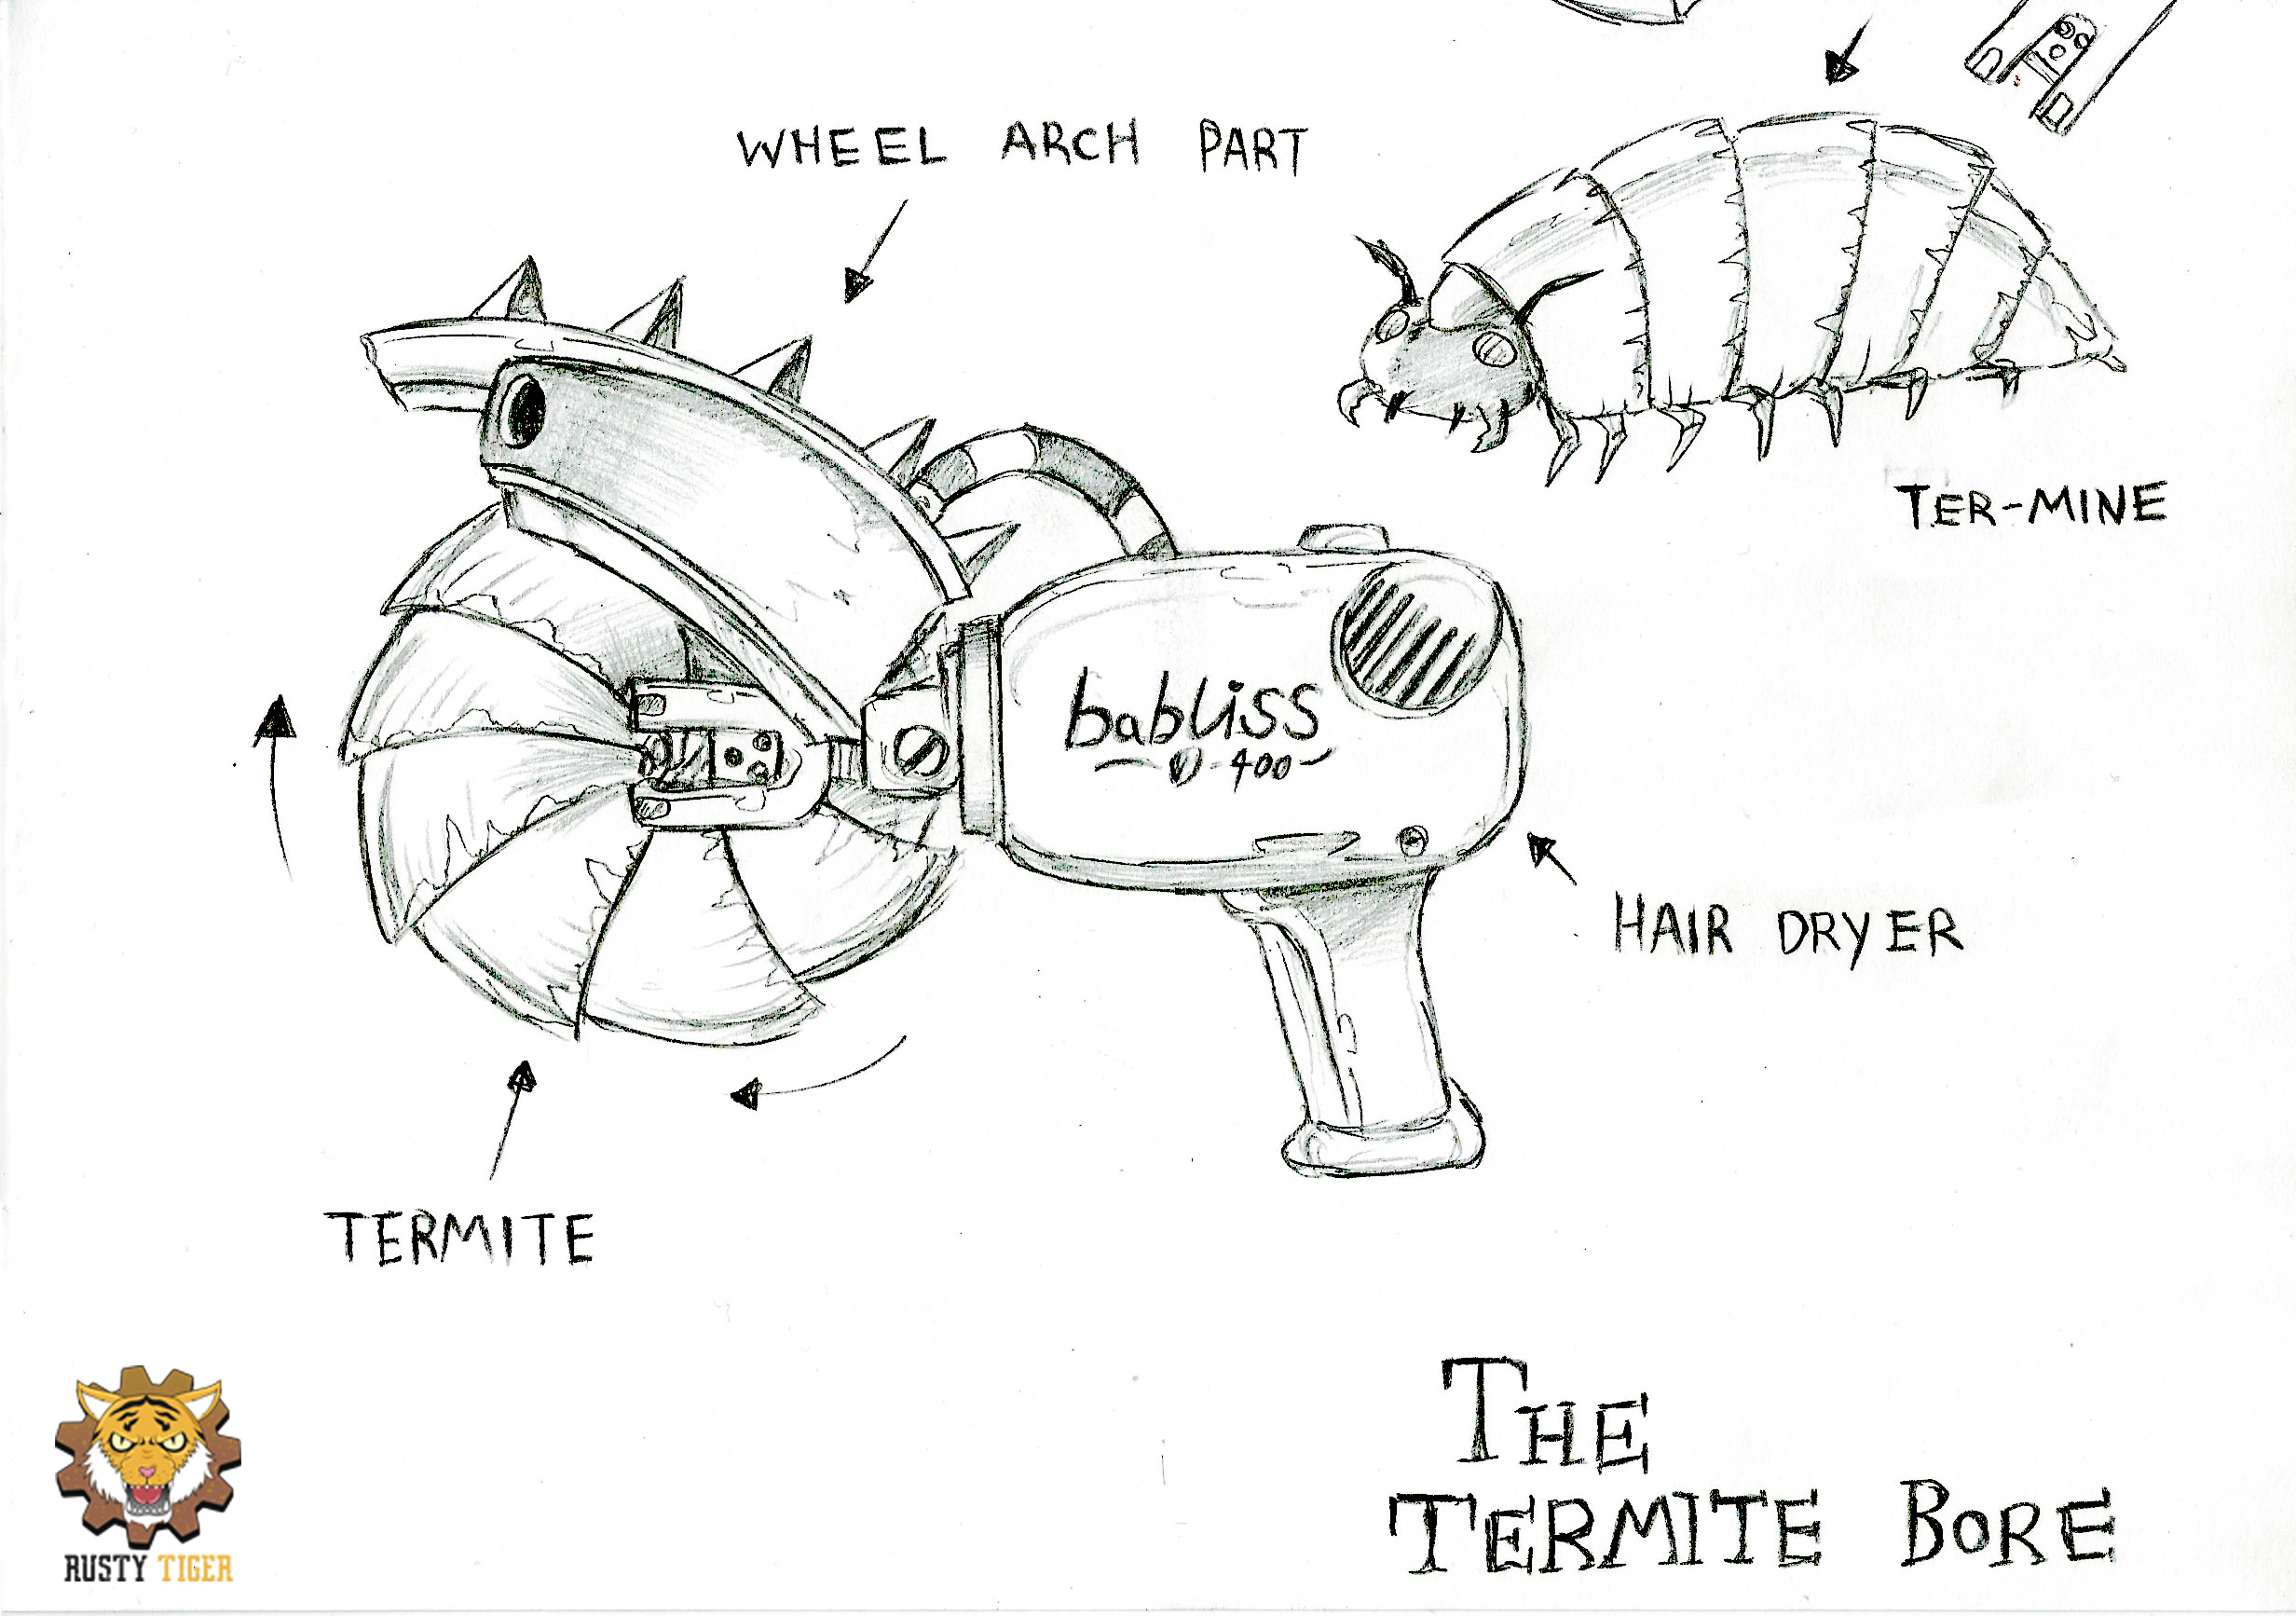 WHEEL ARCH PART
TER-MINE
babliss
D-400
HAIR DRYER
TERMITE
THE
TERMITE BORE
RUSTY TIGER